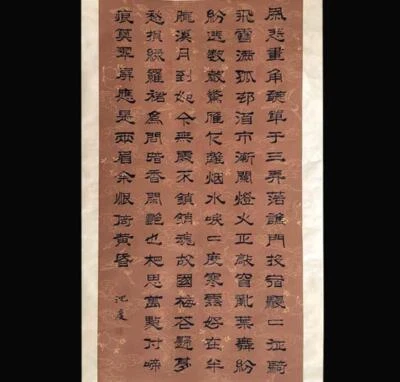 風悲畫角聽單于三弄落譙門投宿駸二征騎
飛雪滿孤邨酒市漸闌燈火正敲窗亂葉舞紛
紛送數聲驚雁乍離烟水唳二度寒雲好在半
朧溪月到如今無處不銷魂故國梅花夢
愁損綠羅裙為問暗香閒艷也相思萬點付啼
痕翠屏應是兩眉余恨倚黃昏
沈度